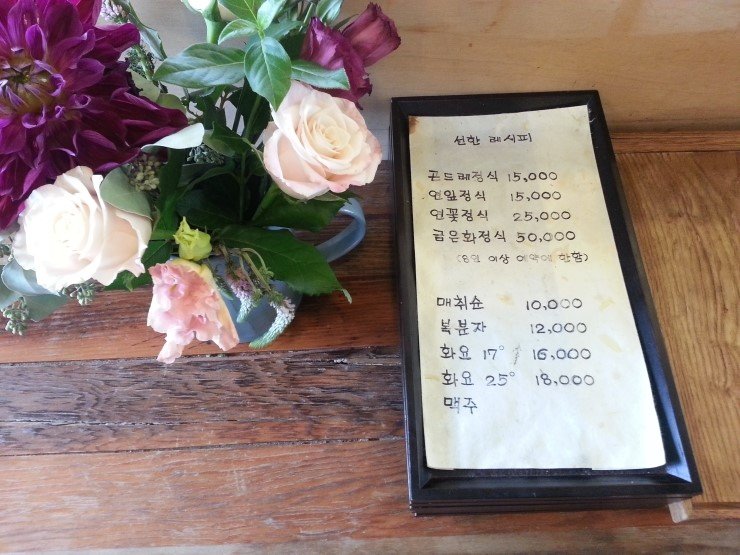 선한 레시피
곤드레정식 15,000
연잎정식 15,000
연꽃정식 25,000
금은화정식 50,000
(8인 이상 예약에 한함)
매취순 10,000
복분자 12,000
화요 17° 16,000
화요 25° 18,000
맥주